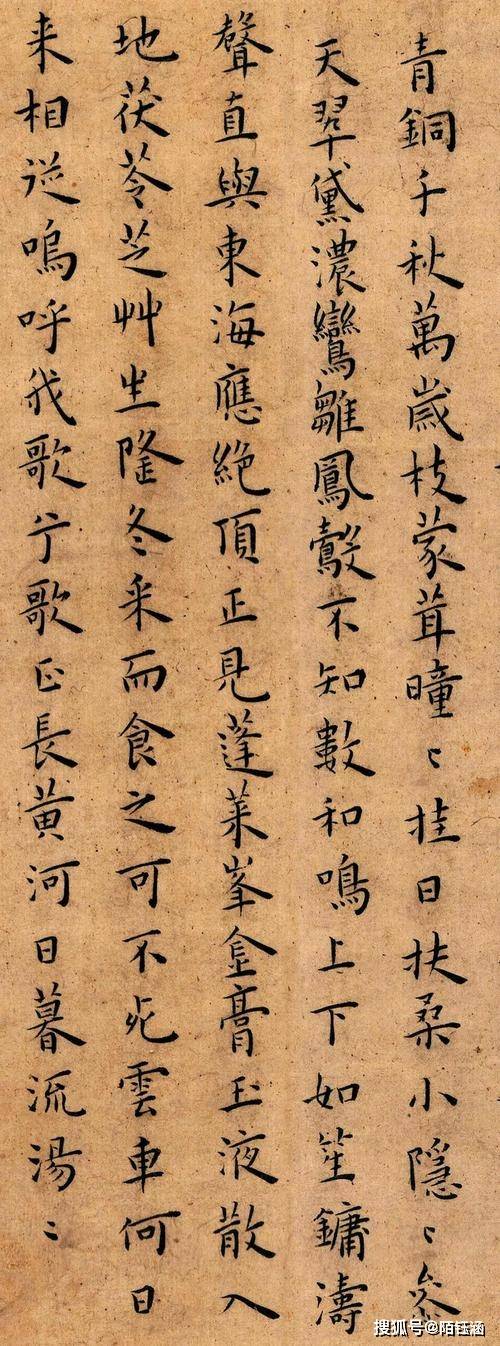 青銅千秋萬歲枝蒙茸曈〻挂日扶桑小隱〻參
天翠黛濃鸞雛鳳鷇不知數和鳴上下如笙鏞濤
聲直與東海應絕頂正見蓬萊峯金膏玉液散入
地茯苓芝艸生隆冬采而食之可不死雲車何日
来相從嗚呼我歌兮歌正長黃河日暮流湯〻
搜狐号@陌钰涵